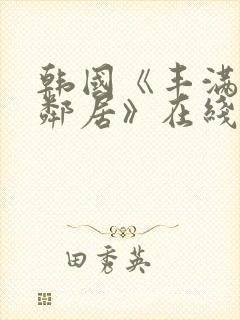 韩国《丰满
邻居》在线
田秀英